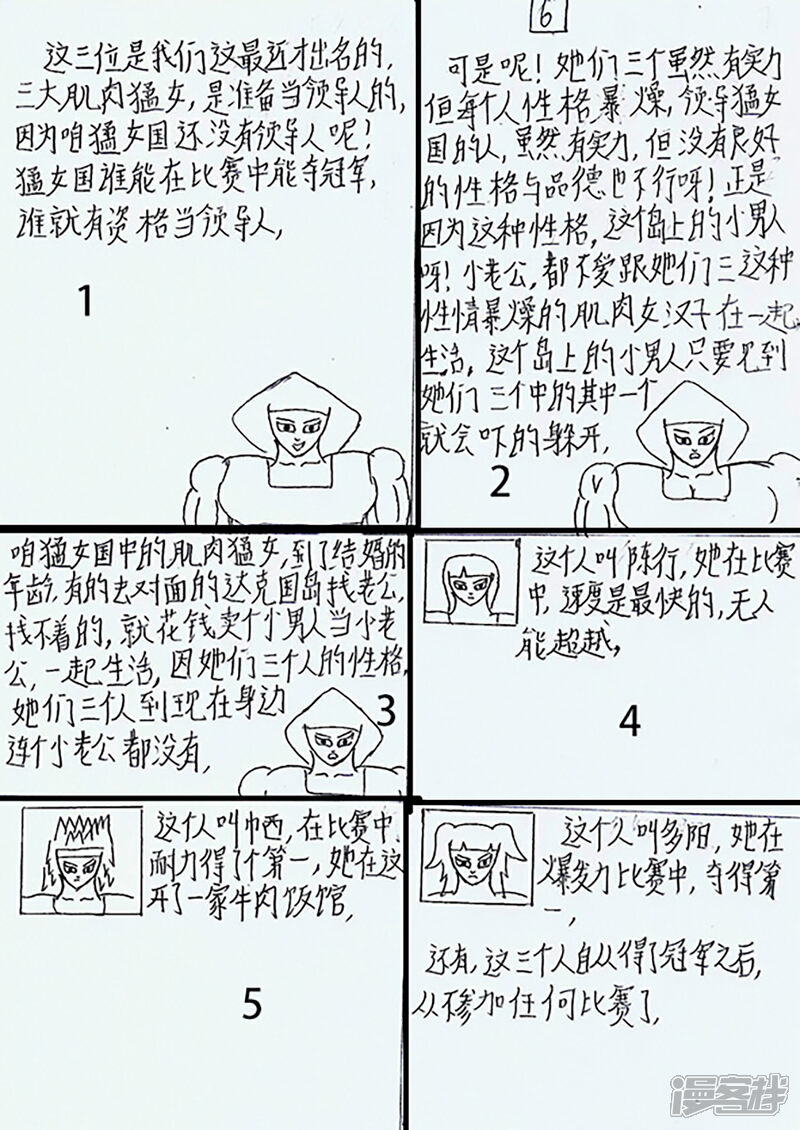 6
这三位是我们这最近才出名的,
三大肌肉猛女,是准备当领导人的,
因为咱猛女国还没有领导人呢!
猛女国谁能在比赛中能夺冠军,
谁就有资格当领导人,
1
可是呢!她们三个虽然有实力
但每个人性格暴燥,领导猛女
国的人,虽然有实力,但没有良好
的性格与品德也不行呀!正是
因为这种性格,这个岛上的小男人
呀!小老公,都不爱跟她们三这种
性情暴燥的肌肉女汉子在一起
生活,这个岛上的小男人只要见到
她们三个中的其中一个
就会吓的躲开,
2
咱猛女国中的肌肉猛女,到了结婚的
年龄,有的去对面的达克国岛找老公,
找不着的,就花钱卖个小男人当小老
公,一起生活,因她们三个人的性格,
她们三个人到现在身边
连个小老公都没有,
3
这个人叫陈行,她在比赛
中,速度是最快的,无人
能超越,
4
这个人叫巾西,在比赛中,
耐力得了个第一,她在这
开了一家牛肉饭馆,
5
这个人叫多阳,她在
爆发力比赛中,夺得第
一,
还有,这三个人自从得了冠军之后,
从不参加任何比赛了,
6
漫客栈